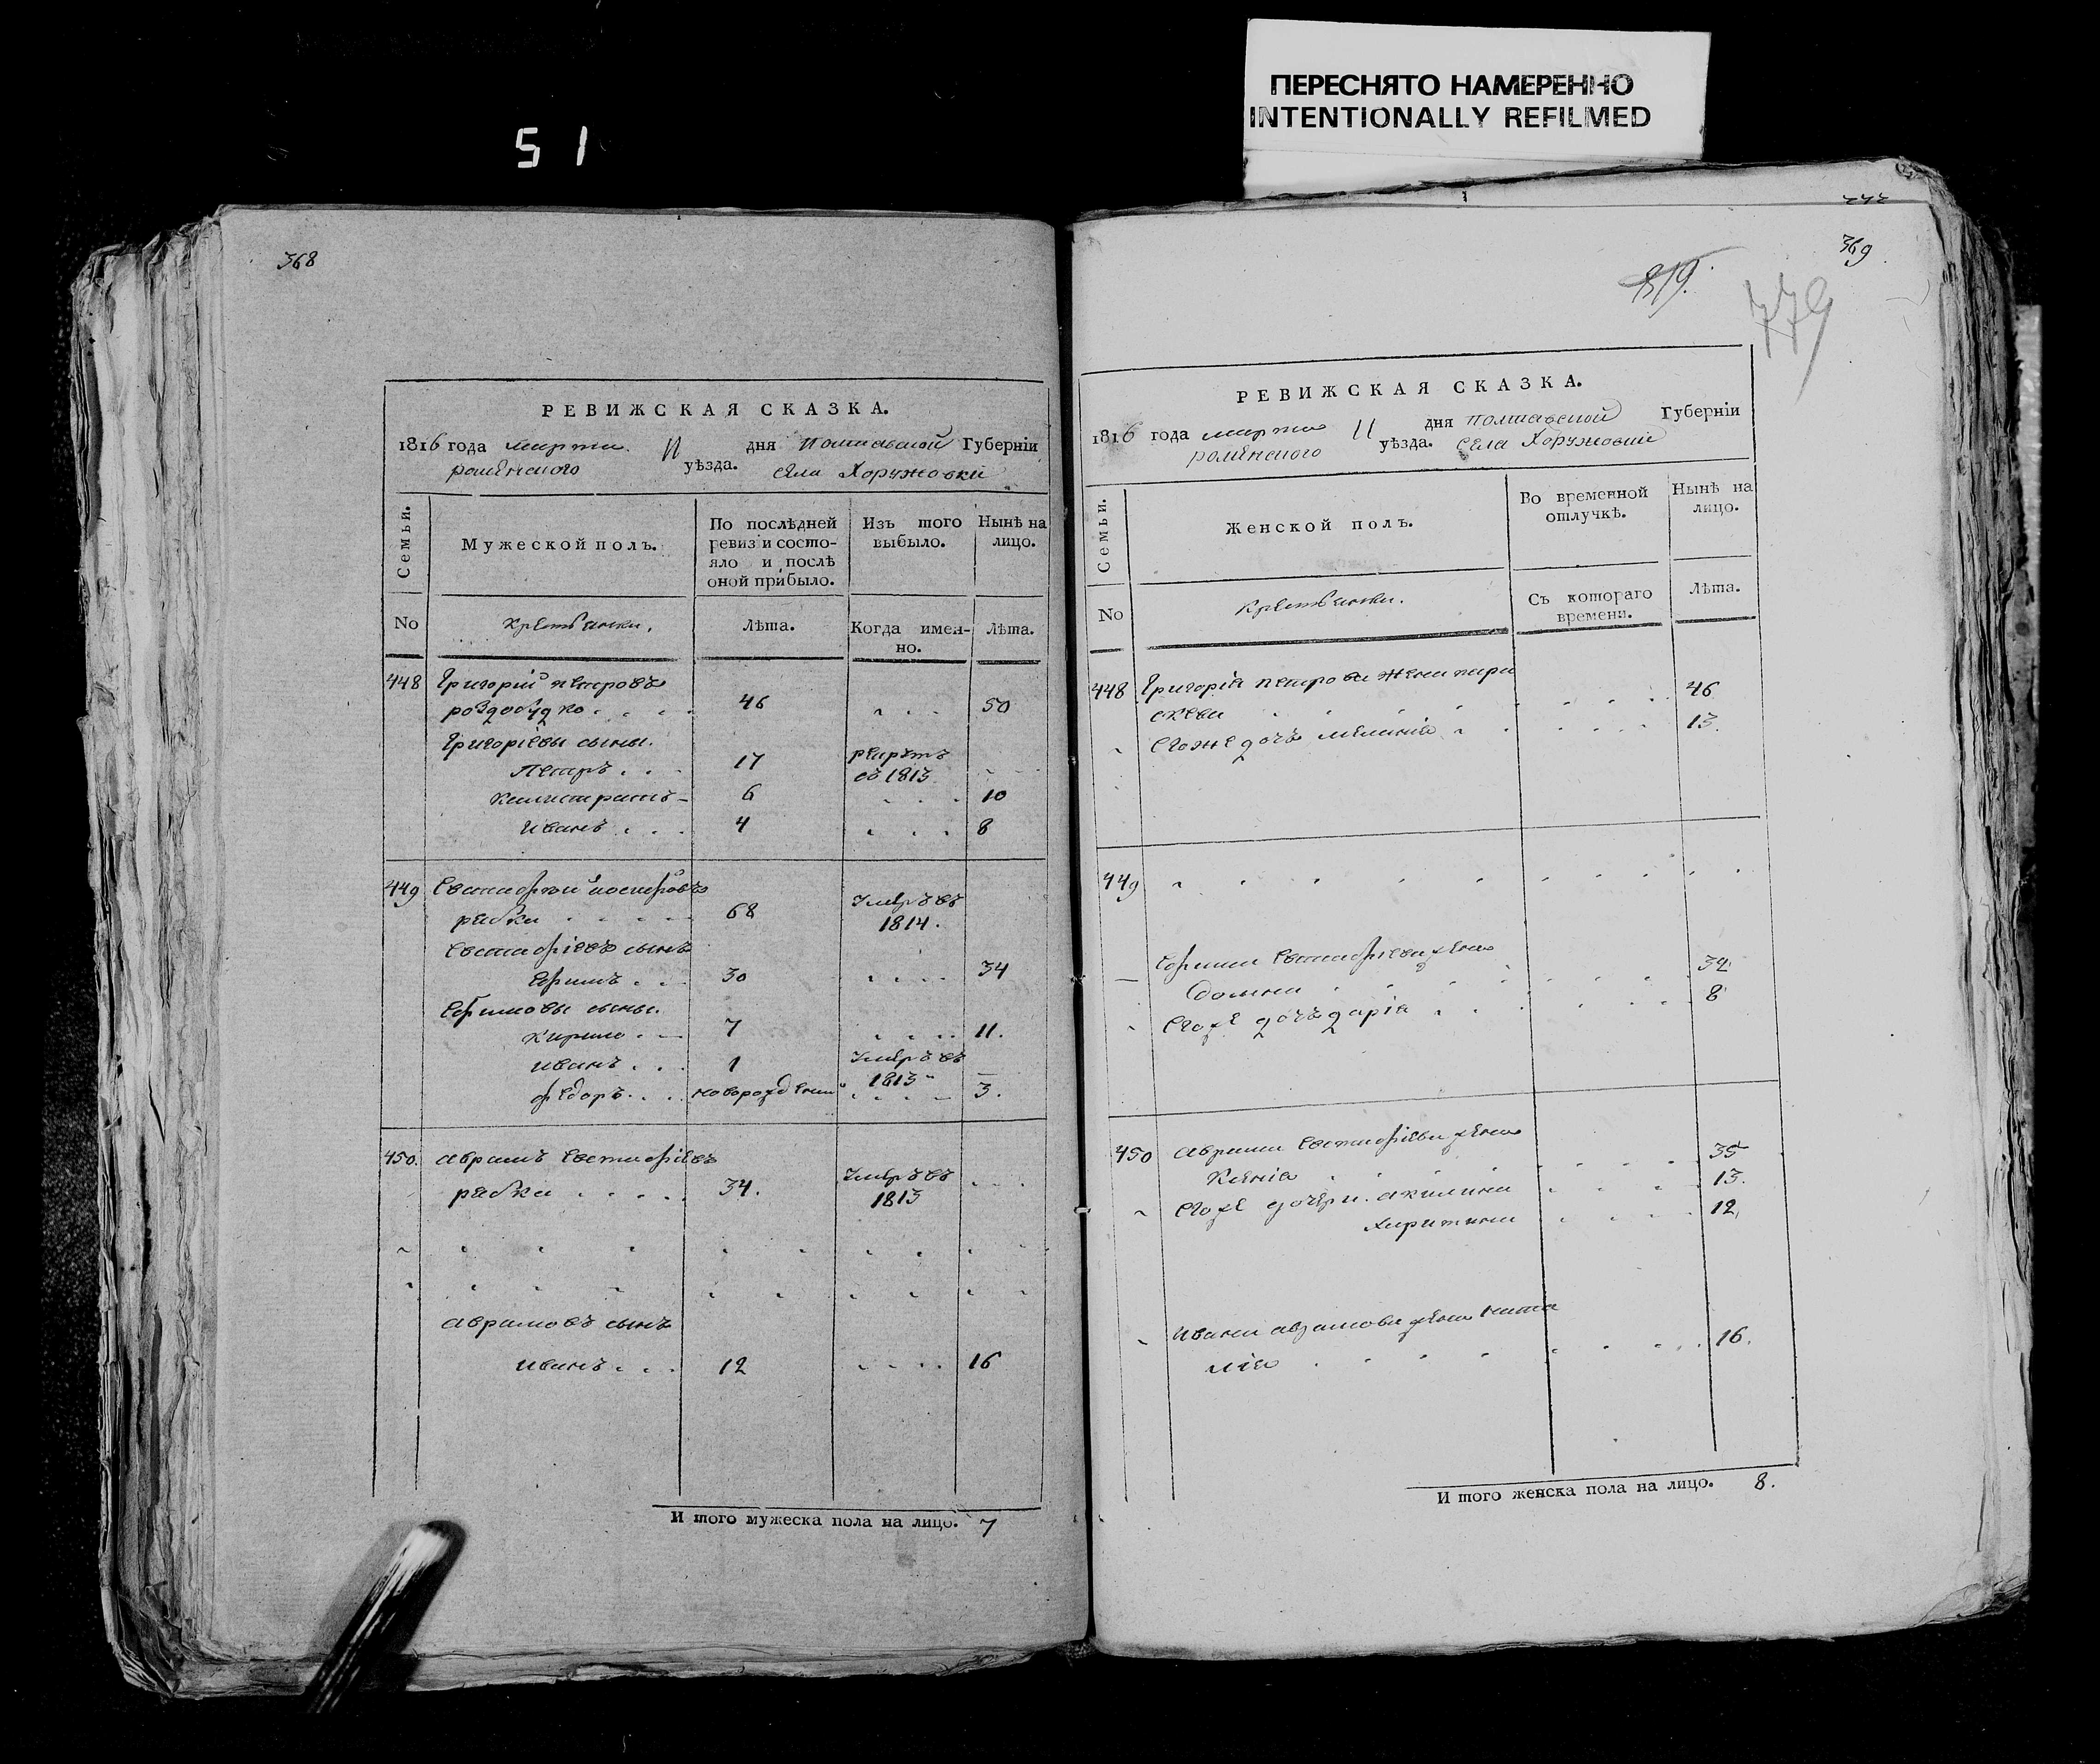 ПЕРЕСНЯТО НАМЕРЕННО
INTENTIONALLY REFILMED
51
368
РЕВИЖСКАЯ СКАЗКА.
1816 года марта 11 дня Полтавской Губерніи
роменского уѣзда. села Хоружовки
Семьи.
Мужеской полъ.
По послѣдней ревизіи состояло и послѣ оной прибыло.
Изъ того выбыло.
Нынѣ на лицо.
No
Лѣта.
Когда именно.
Лѣта.
448 Григорій петровъ
роздобудко . . . . 46 . . . 50
Григоріевы сыны.
Петръ . . . 17 рекрутъ
въ 1813
Калистратъ - 6 . . . 10
Иванъ . . . 4 . . . 8
449 Евстафій
рябка . . . . 68 умръ въ
1814.
Евстафіевъ сынъ
Ефимъ . . . 30 . . . . 34
Ефимовы сыны.
Кирило . — 7 . . . . 11.
иванъ . . . 1 умръ въ
1813
федоръ . . . новорожденій . . . . 3.
450. аврамъ Евстафіевъ
рябка . . . . . 34. умръ въ
1813
аврамовъ сынъ
иванъ . . . 12 . . . . 16
И того мужеска пола на лицо. 7
369
819.
779
РЕВИЖСКАЯ СКАЗКА.
1816 года марта 11 дня полтавской Губерніи
роменского уѣзда. села Хоружовки
Семьи.
Женской полъ.
Во временной отлучкѣ.
Нынѣ на лицо.
No
Съ котораго времени.
Лѣта.
448 Григорія петрова жена пара
скева . . . . 46
Егоже дочь меланія . . . 13.
449
Ефима Евстафіева жена
домна . . . . 32
Егоже дочь дарія . . . . 8
450 аврама Евстафіева жена
Ксенія . . . . 35
Егоже дочери. акилина . . . 13.
харитина . . . . 12,
ивана аврамова жена ната
лія . . . . 16.
И того женска пола на лицо. 8.